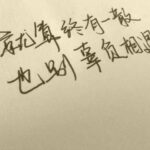 就算终有一散
也别辜负相